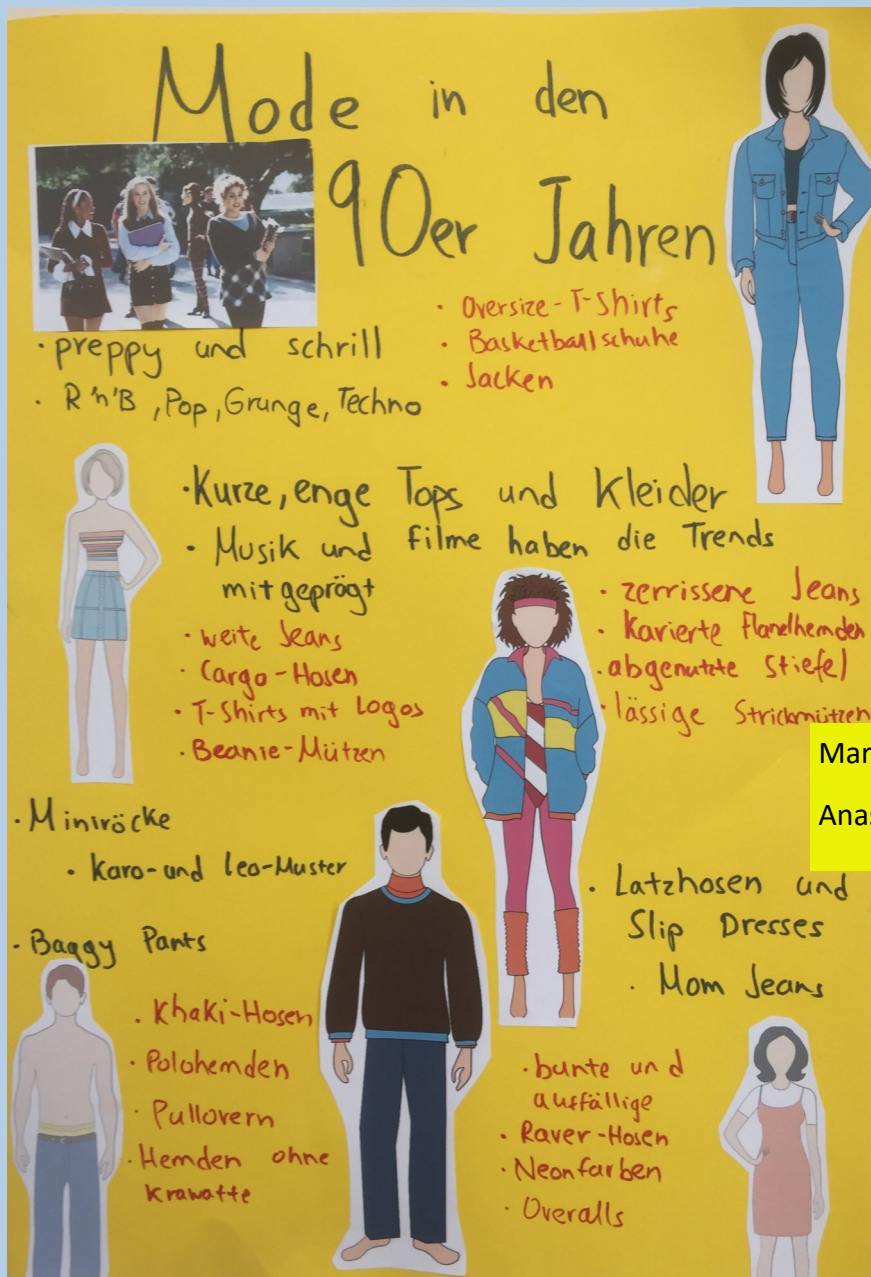 Mode in den
90er Jahren
· preppy und schrill
· R'n'B, Pop, Grunge, Techno
· Oversize-T-Shirts
· Basketballschuhe
· Jacken
· Kurze, enge Tops und Kleider
· Musik und Filme haben die Trends
mitgeprägt
· weite Jeans
· Cargo-Hosen
· T-Shirts mit Logos
· Beanie-Mützen
· zerrissene Jeans
· Karierte Flanelhemden
· abgenutzte Stiefel
· lässige Strickmützen
Mar
Anas
· Miniröcke
· Karo- und Leo-Muster
· Baggy Pants
· Latzhosen und
Slip Dresses
· Mom Jeans
· Khaki-Hosen
· Polohemden
· Pullovern
· Hemden ohne
Krawatte
· bunte und
auffällige
· Raver-Hosen
· Neonfarben
· Overalls